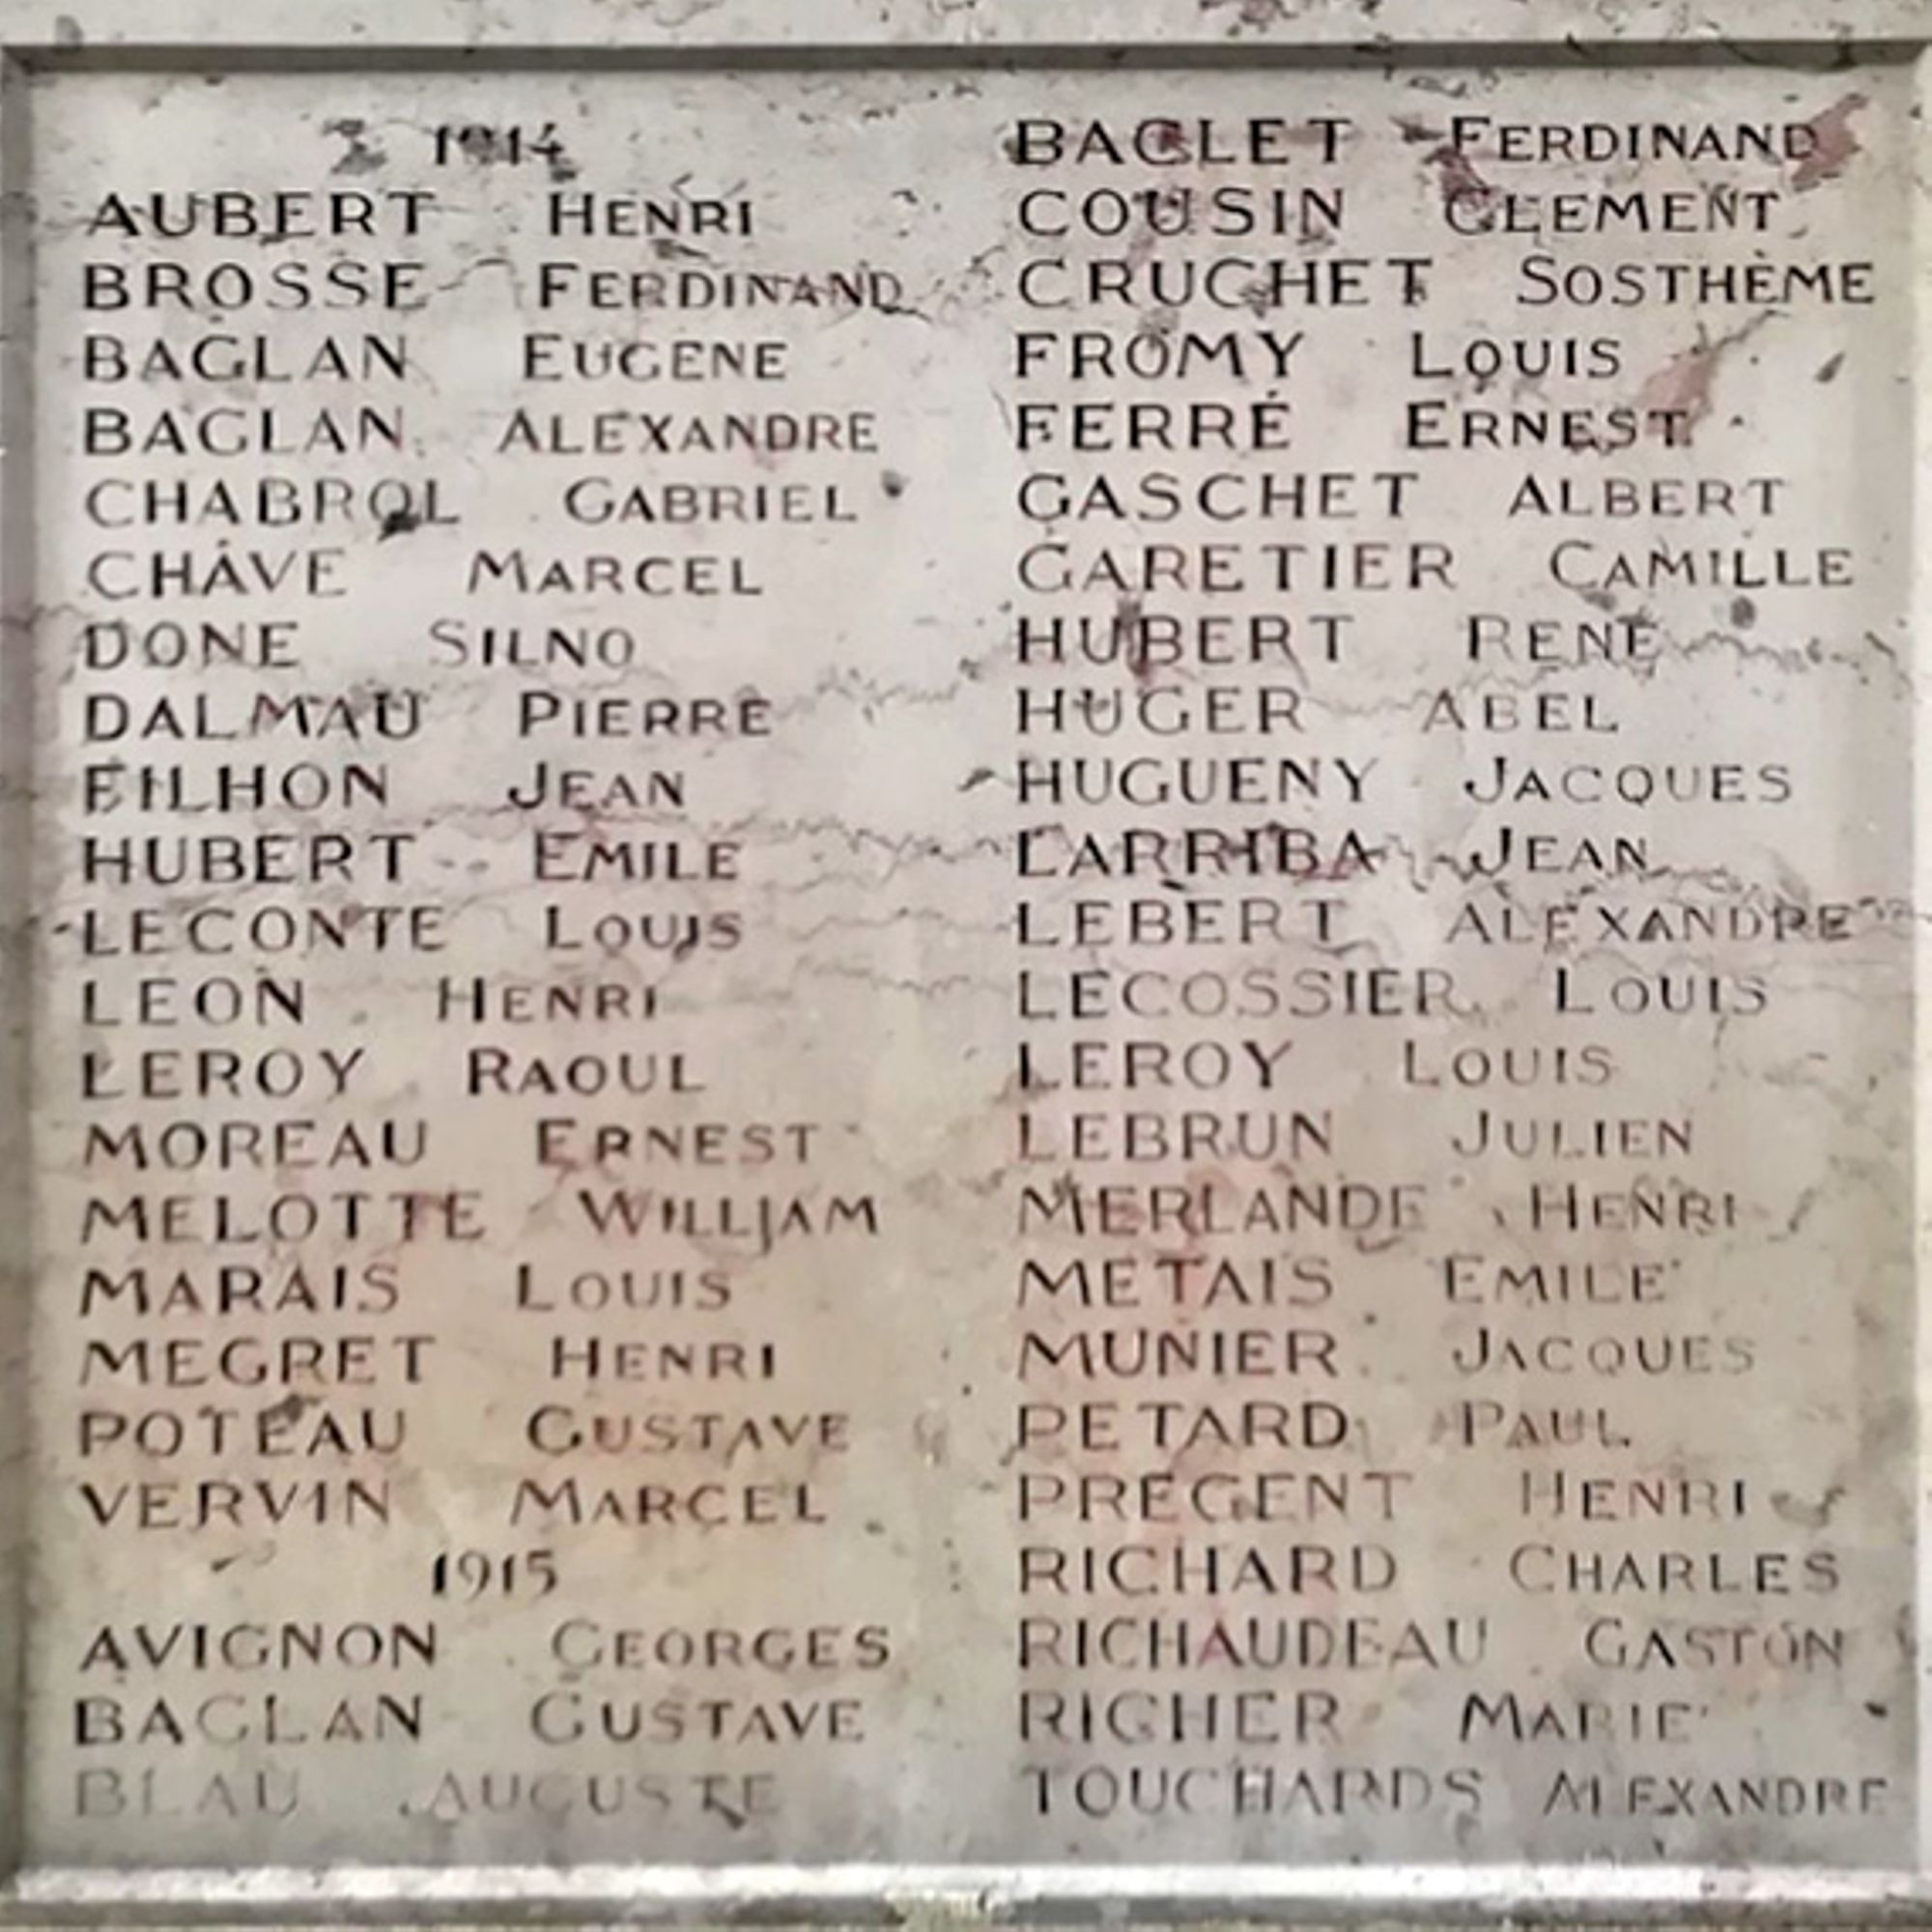 1914
AUBERT HENRI
BROSSE FERDINAND
BAGLAN EUGENE
BAGLAN ALEXANDRE
CHABROL GABRIEL
CHAVE MARCEL
DONE SILNO
DALMAU PIERRE
FILHON JEAN
HUBERT EMILE
LECONTE LOUIS
LEON HENRI
LEROY RAOUL
MOREAU ERNEST
MELOTTE WILLIAM
MARAIS LOUIS
MEGRET HENRI
POTEAU GUSTAVE
VERVIN MARCEL
1915
AVIGNON GEORGES
BAGLAN GUSTAVE
BLAU AUGUSTE
BAGLET FERDINAND
COUSIN CLEMENT
CRUCHET SOSTHÈME
FROMY LOUIS
FERRÉ ERNEST
GASCHET ALBERT
GARETIER CAMILLE
HUBERT RENE
HUGER ABEL
HUGUENY JACQUES
LARRIBA JEAN
LEBERT ALEXANDRE
LECOSSIER LOUIS
LEROY LOUIS
LEBRUN JULIEN
MERLANDE HENRI
METAIS EMILE
MUNIER JACQUES
PETARD PAUL
PREGENT HENRI
RICHARD CHARLES
RICHAUDEAU GASTON
RICHER MARIE
TOUCHARDS ALEXANDRE